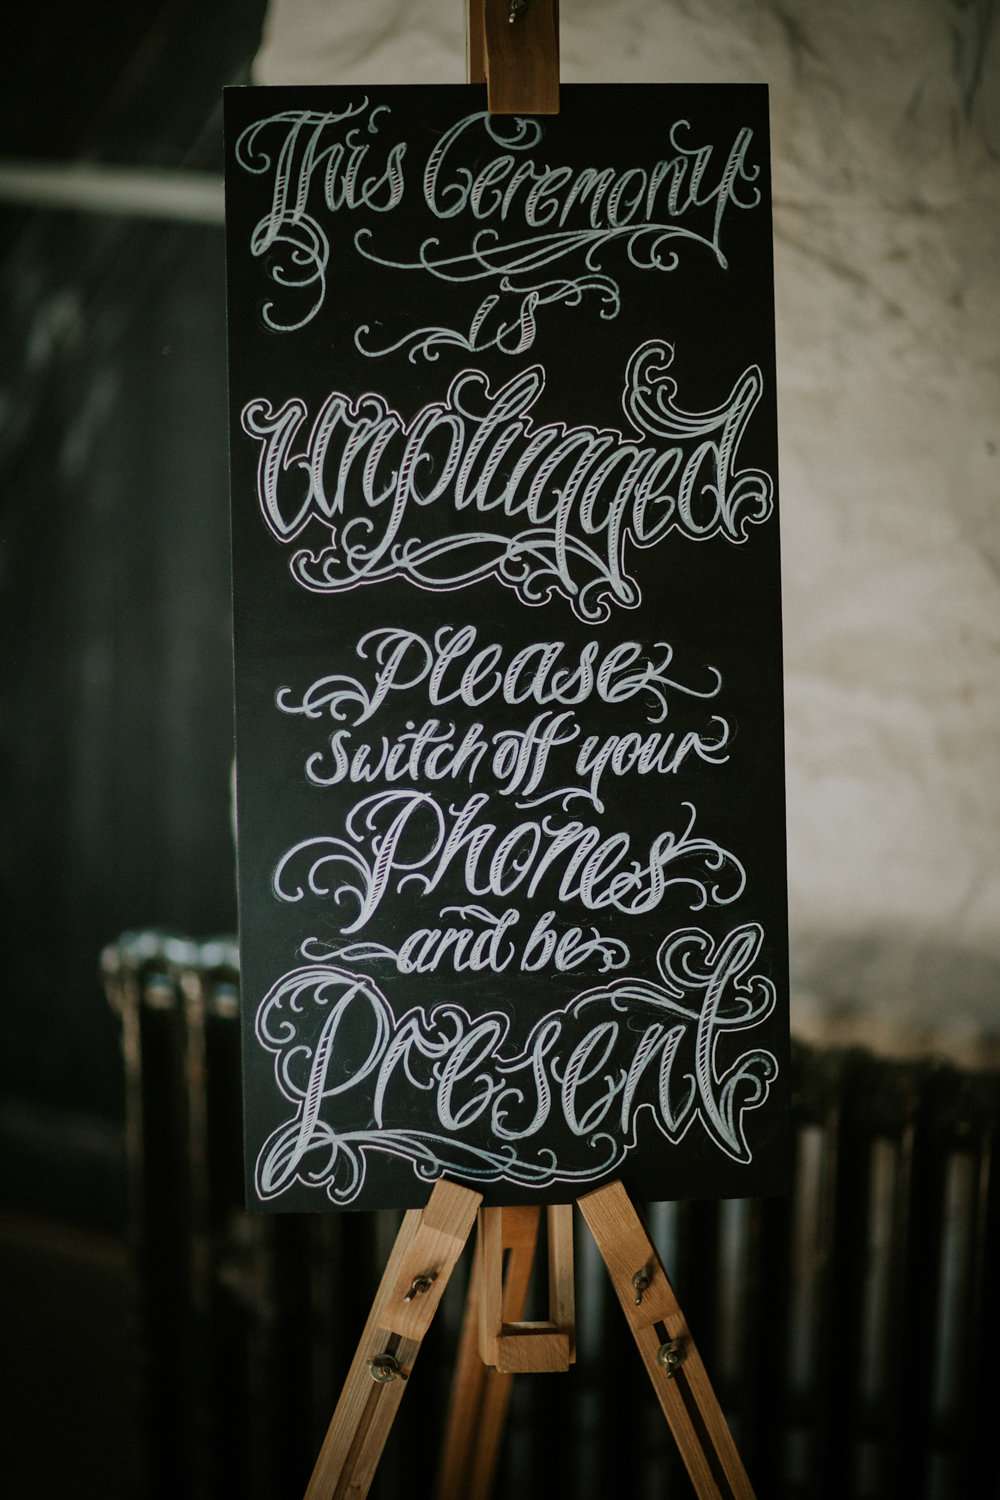 This Ceremony
is
Unplugged
Please
switch off your
Phones
and be
Present